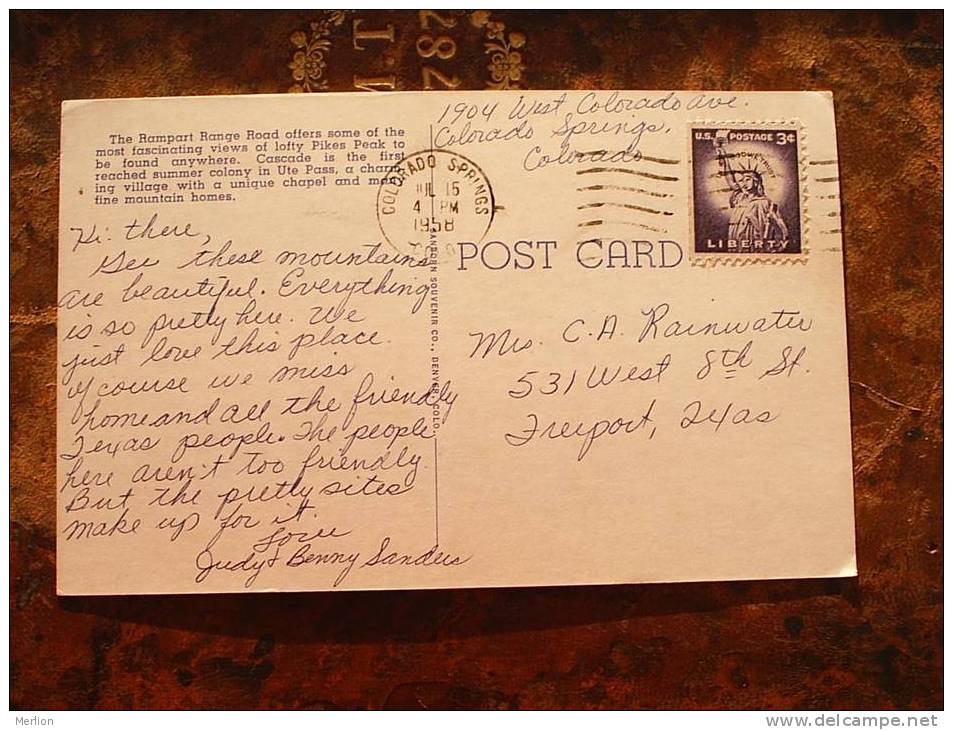 M.T.
282
1904 West Colorado Ave.
Colorado Springs,
Colorado
The Rampart Range Road offers some of the
most fascinating views of lofty Pikes Peak to
be found anywhere. Cascade is the first
reached summer colony in Ute Pass, a charm-
ing village with a unique chapel and many
fine mountain homes.
COLORADO SPRINGS
JUL 15
4 PM
1958
COLO
U.S. POSTAGE 3¢
IN GOD WE TRUST
LIBERTY
POST CARD
SANBORN SOUVENIR CO., DENVER, COLO.
Hi there,
Gee these mountains
are beautiful. Everything
is so pretty here. We
just love this place.
of course we miss
home and all the friendly
Texas people. The people
here aren't too friendly.
But the pretty sites
make up for it.
Love
Judy & Benny Sanders
Mrs. C.A. Rainwater
531 West 8th St.
Freeport, Texas
Merlion
www.delcampe.net